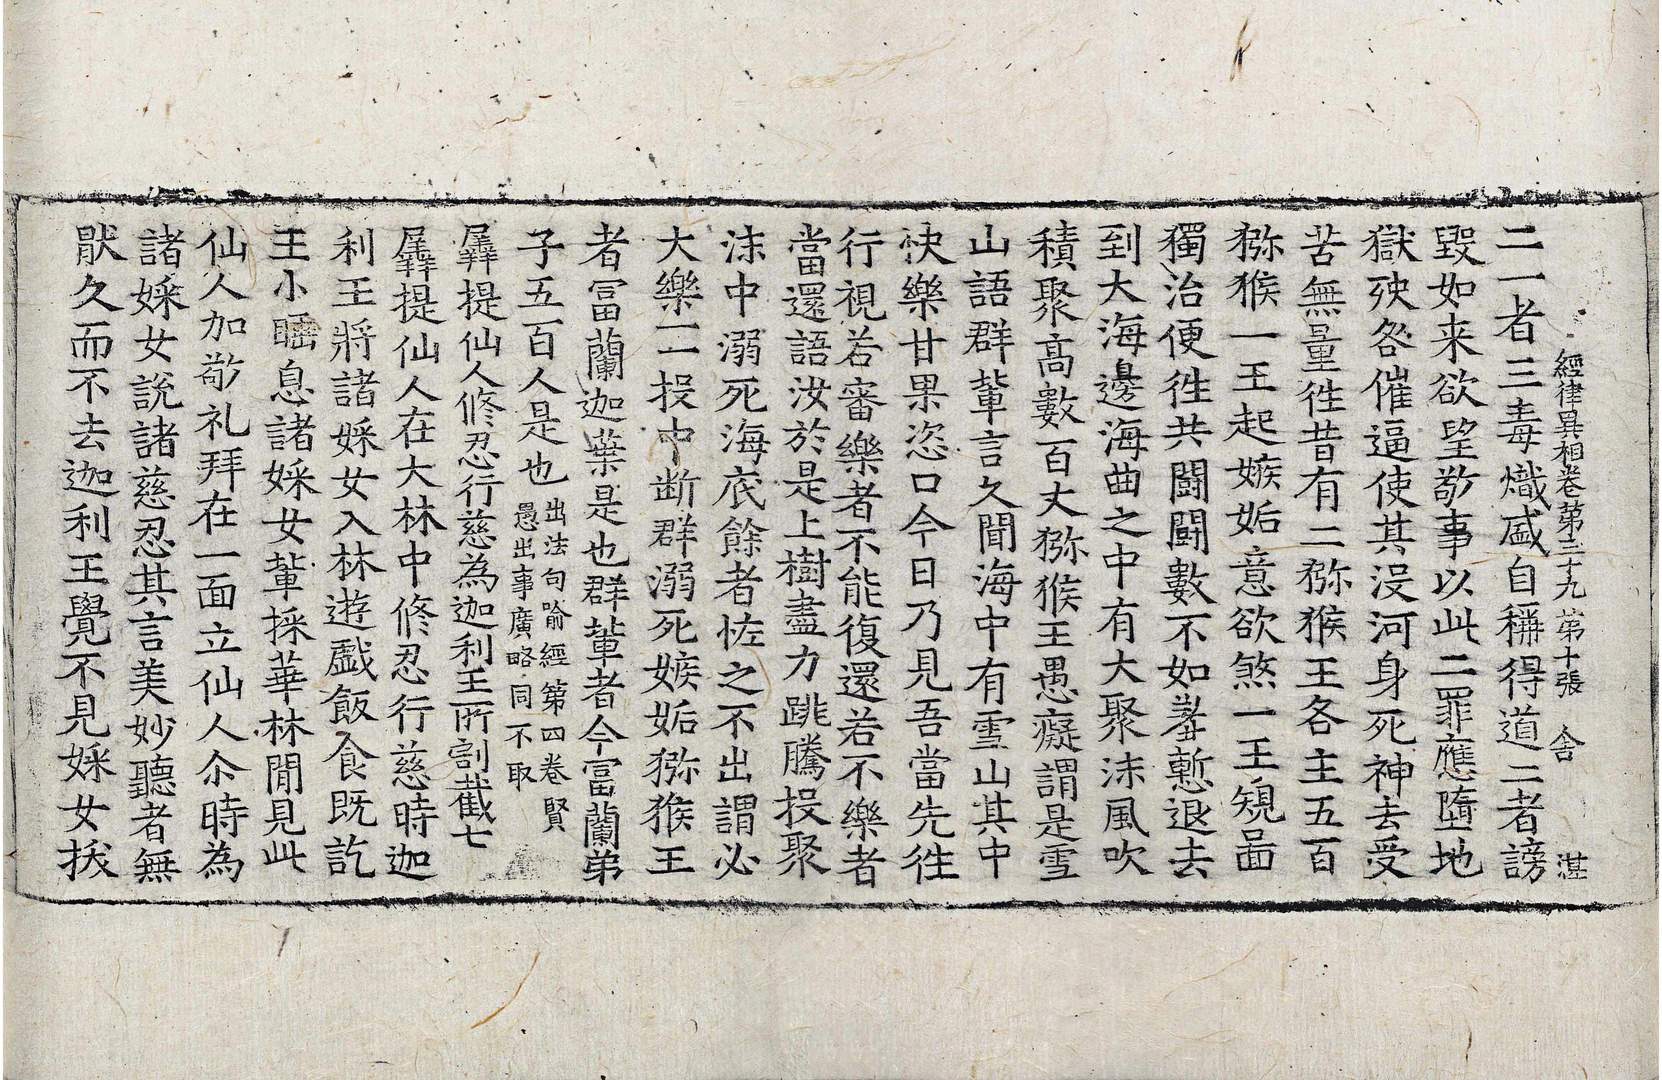 經律異相卷第三十九 第十張 舍 湛
二一者三毒熾盛自稱得道二者謗
毀如来欲望敬事以此二罪應墮地
獄殃咎催逼使其沒河身死神去受
苦無量徃昔有二獼猴王各主五百
獼猴一王起嫉妬意欲煞一王規啚
獨治便徃共鬪鬪數不如羞慙退去
到大海邊海曲之中有大聚沫風吹
積聚高數百丈獼猴王愚癡謂是雪
山語群軰言久聞海中有雪山其中
快樂甘果恣口今日乃見吾當先徃
行視若審樂者不能復還若不樂者
當還語汝於是上樹盡力跳騰投聚
沫中溺死海底餘者恠之不出謂必
大樂一一投中断群溺死嫉妬獼猴王
者冨蘭迦葉是也群軰者今冨蘭弟
子五百人是也 出法句喻經第四卷賢
愚出事廣略同不取
羼提仙人修忍行慈為迦利王所割截七
羼提仙人在大林中修忍行慈時迦
利王將諸婇女入林遊戲飯食既訖
王小睡息諸婇女軰採華林閒見此
仙人加敬礼拜在一面立仙人尒時為
諸婇女說諸慈忍其言美妙聽者無
猒久而不去迦利王覺不見婇女拔